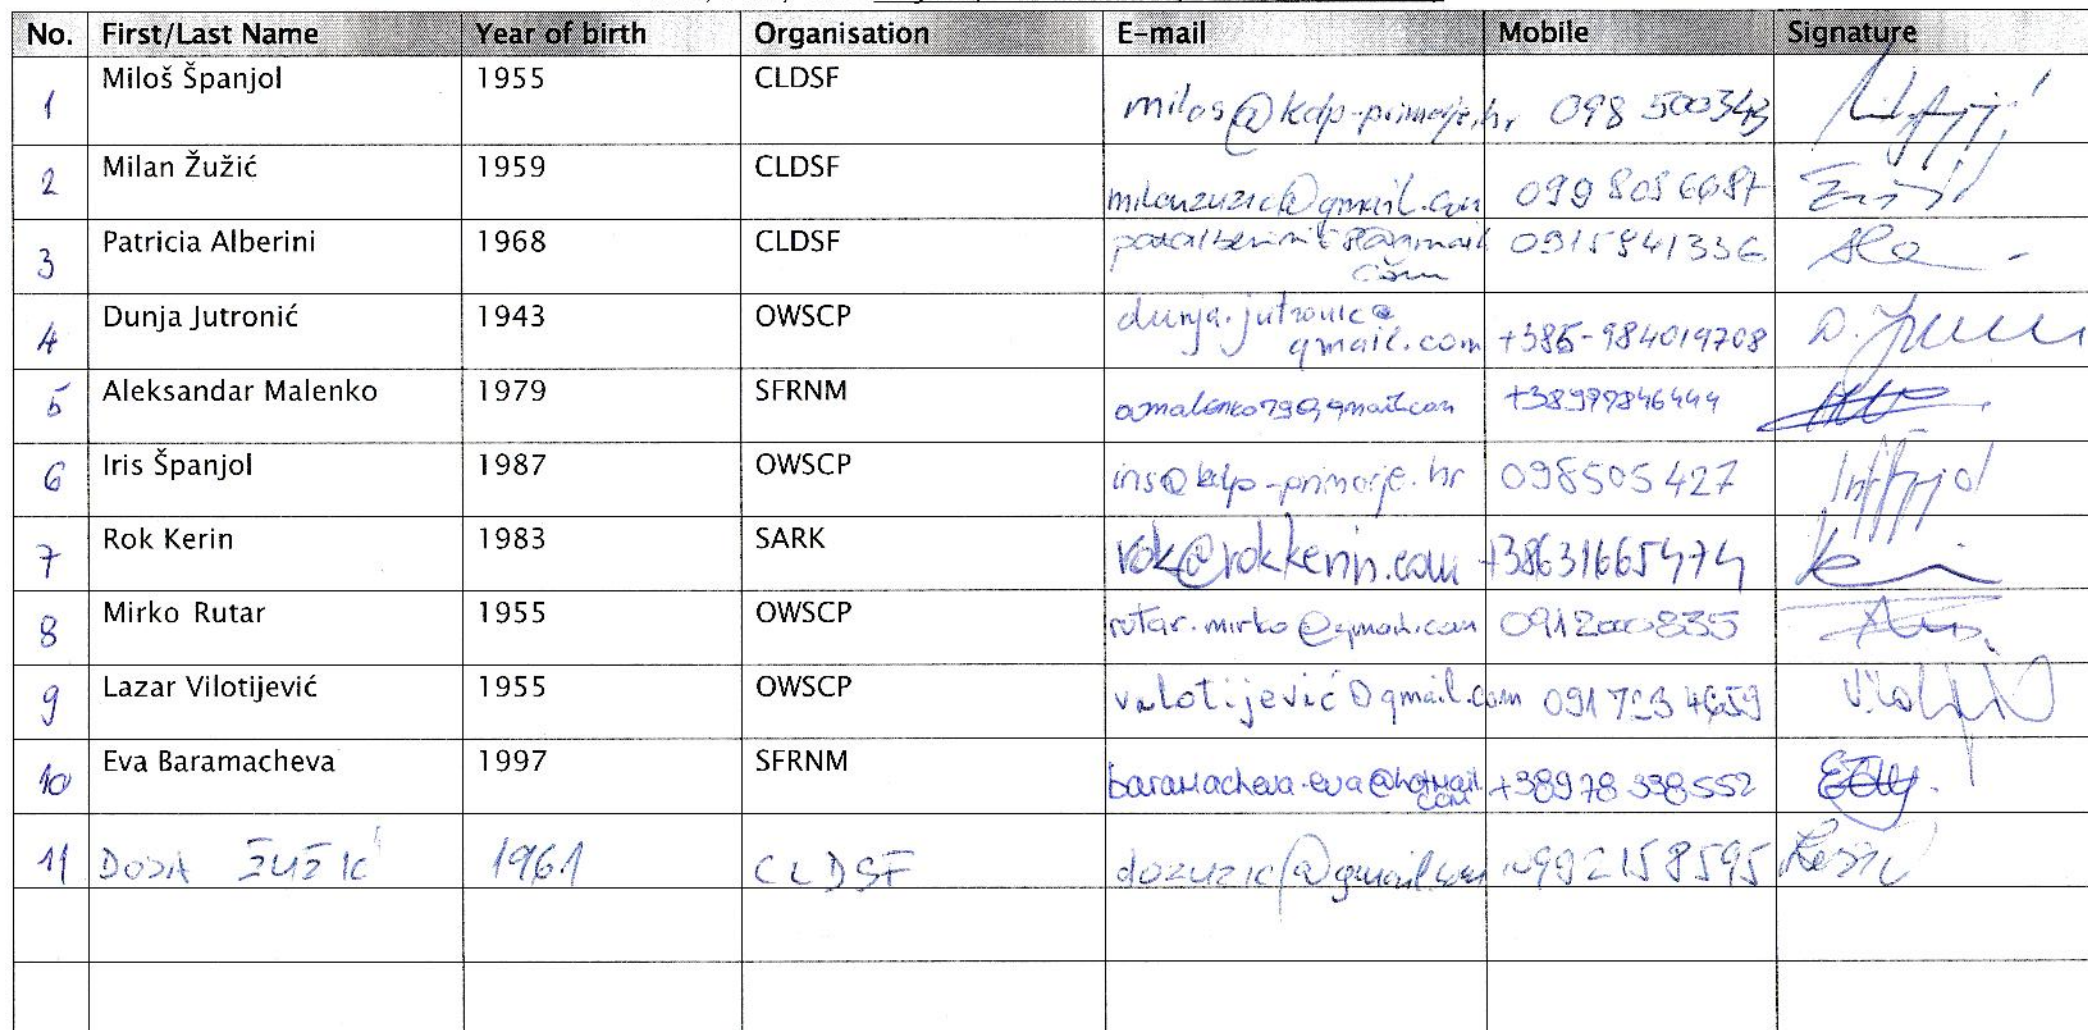 No. First/Last Name Year of birth Organisation E-mail Mobile Signature
1 Miloš Španjol 1955 CLDSF milos@kdp-primorje.hr 098 500343
2 Milan Žužić 1959 CLDSF milanzuzic@gmail.com 099 8086687
3 Patricia Alberini 1968 CLDSF 0915841336
4 Dunja Jutronić 1943 OWSCP dunja.jutronic@
gmail.com +385-984019708
5 Aleksandar Malenko 1979 SFRNM amalenko79@gmail.com +38977846444
6 Iris Španjol 1987 OWSCP iris@kdp-primorje.hr 098505427
7 Rok Kerin 1983 SARK rok@rokkerin.com +38631665474
8 Mirko Rutar 1955 OWSCP rutar.mirko@gmail.com 0912000835
9 Lazar Vilotijević 1955 OWSCP vilotijević@gmail.com
10 Eva Baramacheva 1997 SFRNM baramacheva-eva@hotmail
com +38978338552
11 ŽUŽIĆ 1961 CLDSF dozuzic@gmail.com 0992158595